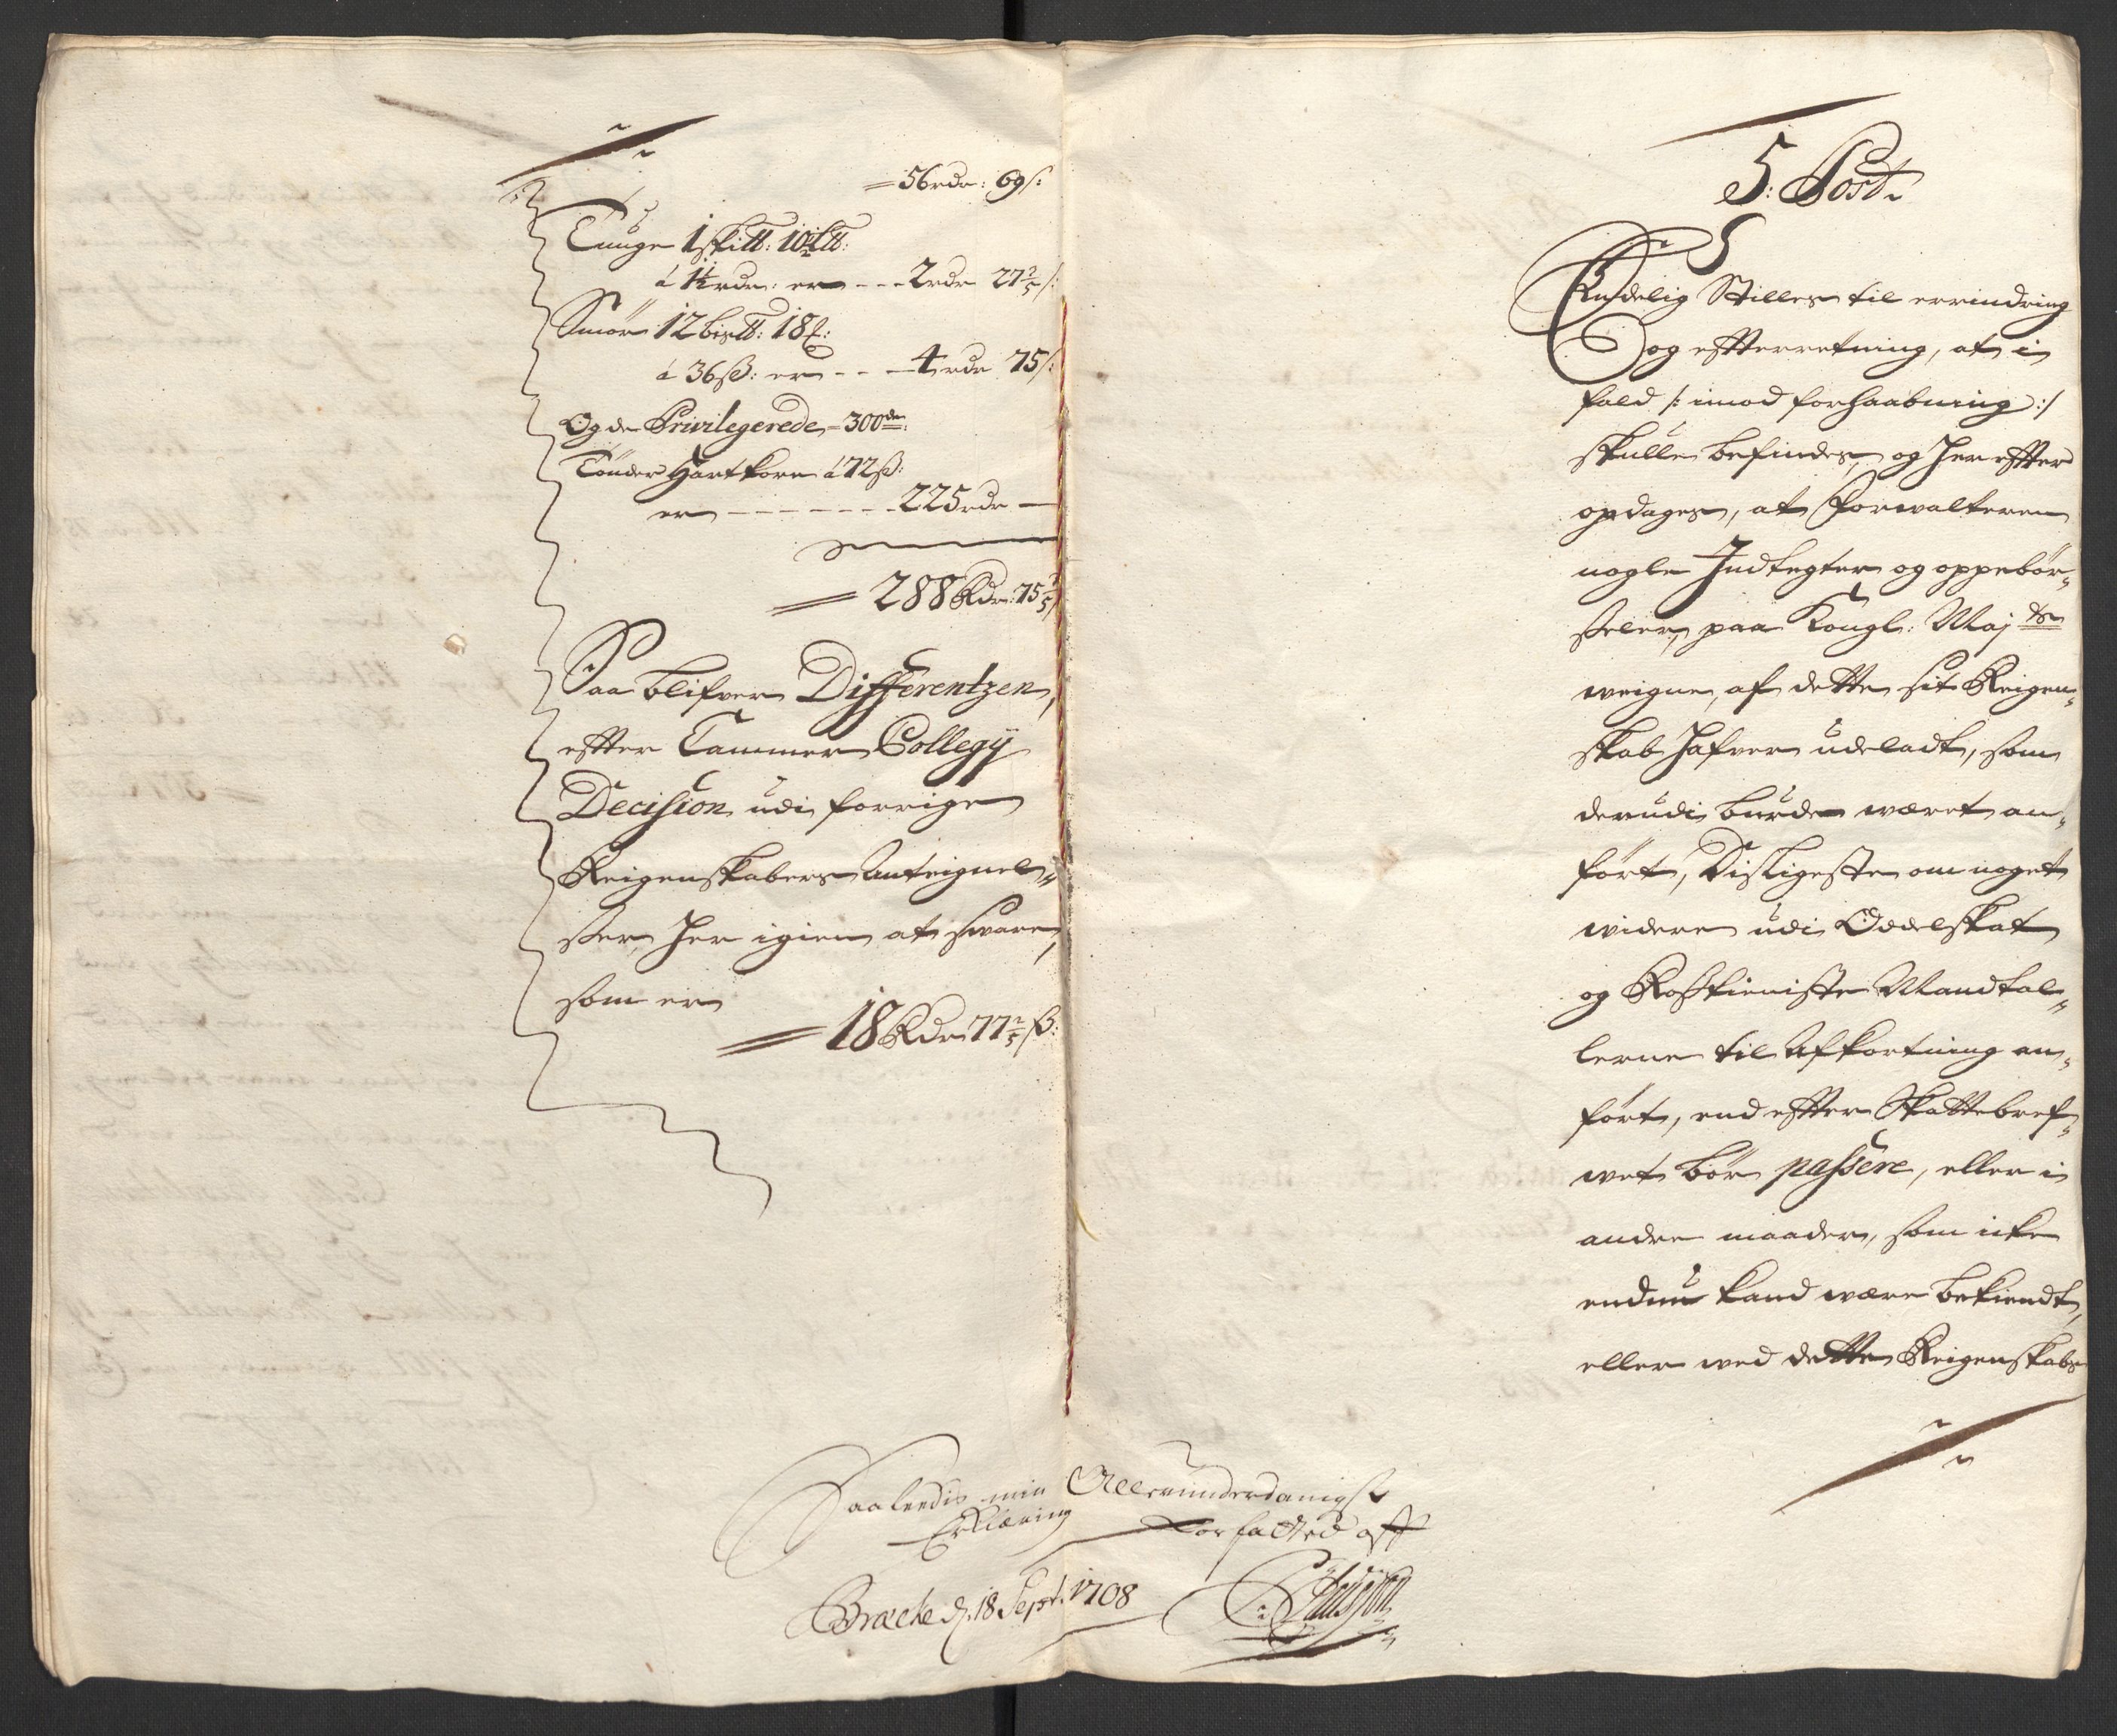 = 56 rdr: 69 s:
Tunge 1 skill: 10½ lb:
á 1½ rdr: er - - - 2 rdr 27 3/5 s:
Smör 12 bislb: 18 f:
á 36 ß: er - - - 4 rdr 75 s:
Og de Privilegerede - 300de:
Tönder Hartkorn á 72 ß:
er - - - - - - - 225 rdr -
= 288 Rdr: 75 3/5
Saa blifver Differentzen,
effter Cammer Collegij
Decision udi forrige
Reigenskabers Anteignel„
ser, her igien at svare,
som er
= 18 Rdr 77 2/5 ß:
5: Post.
Endelig Stilles til erindring
og effterretning, at i
fald /: imod forhaabning :/
skulle befindes, og her effter
opdages, at Forwalteren
nogle Indtegter og oppebör„
seler, paa Kongl: Maj ts
weigne, af dette sit Reigen„
skab hafver udeladt, som
derudi burde weret an„
fört, Disligeste om noget
widere udi Oddelskat
og Rostieniste Mandtal„
lerne til Afkortning an„
fört, end effter Skattebref„
wet bör passere, eller i
andre maader, som icke
endnu kand være bekiendt,
eller wed dette Reigenskabs
Saaledis min Allerunderdanigst
Erklæring forfatted aff
Bracke d. 18 Sept. 1708